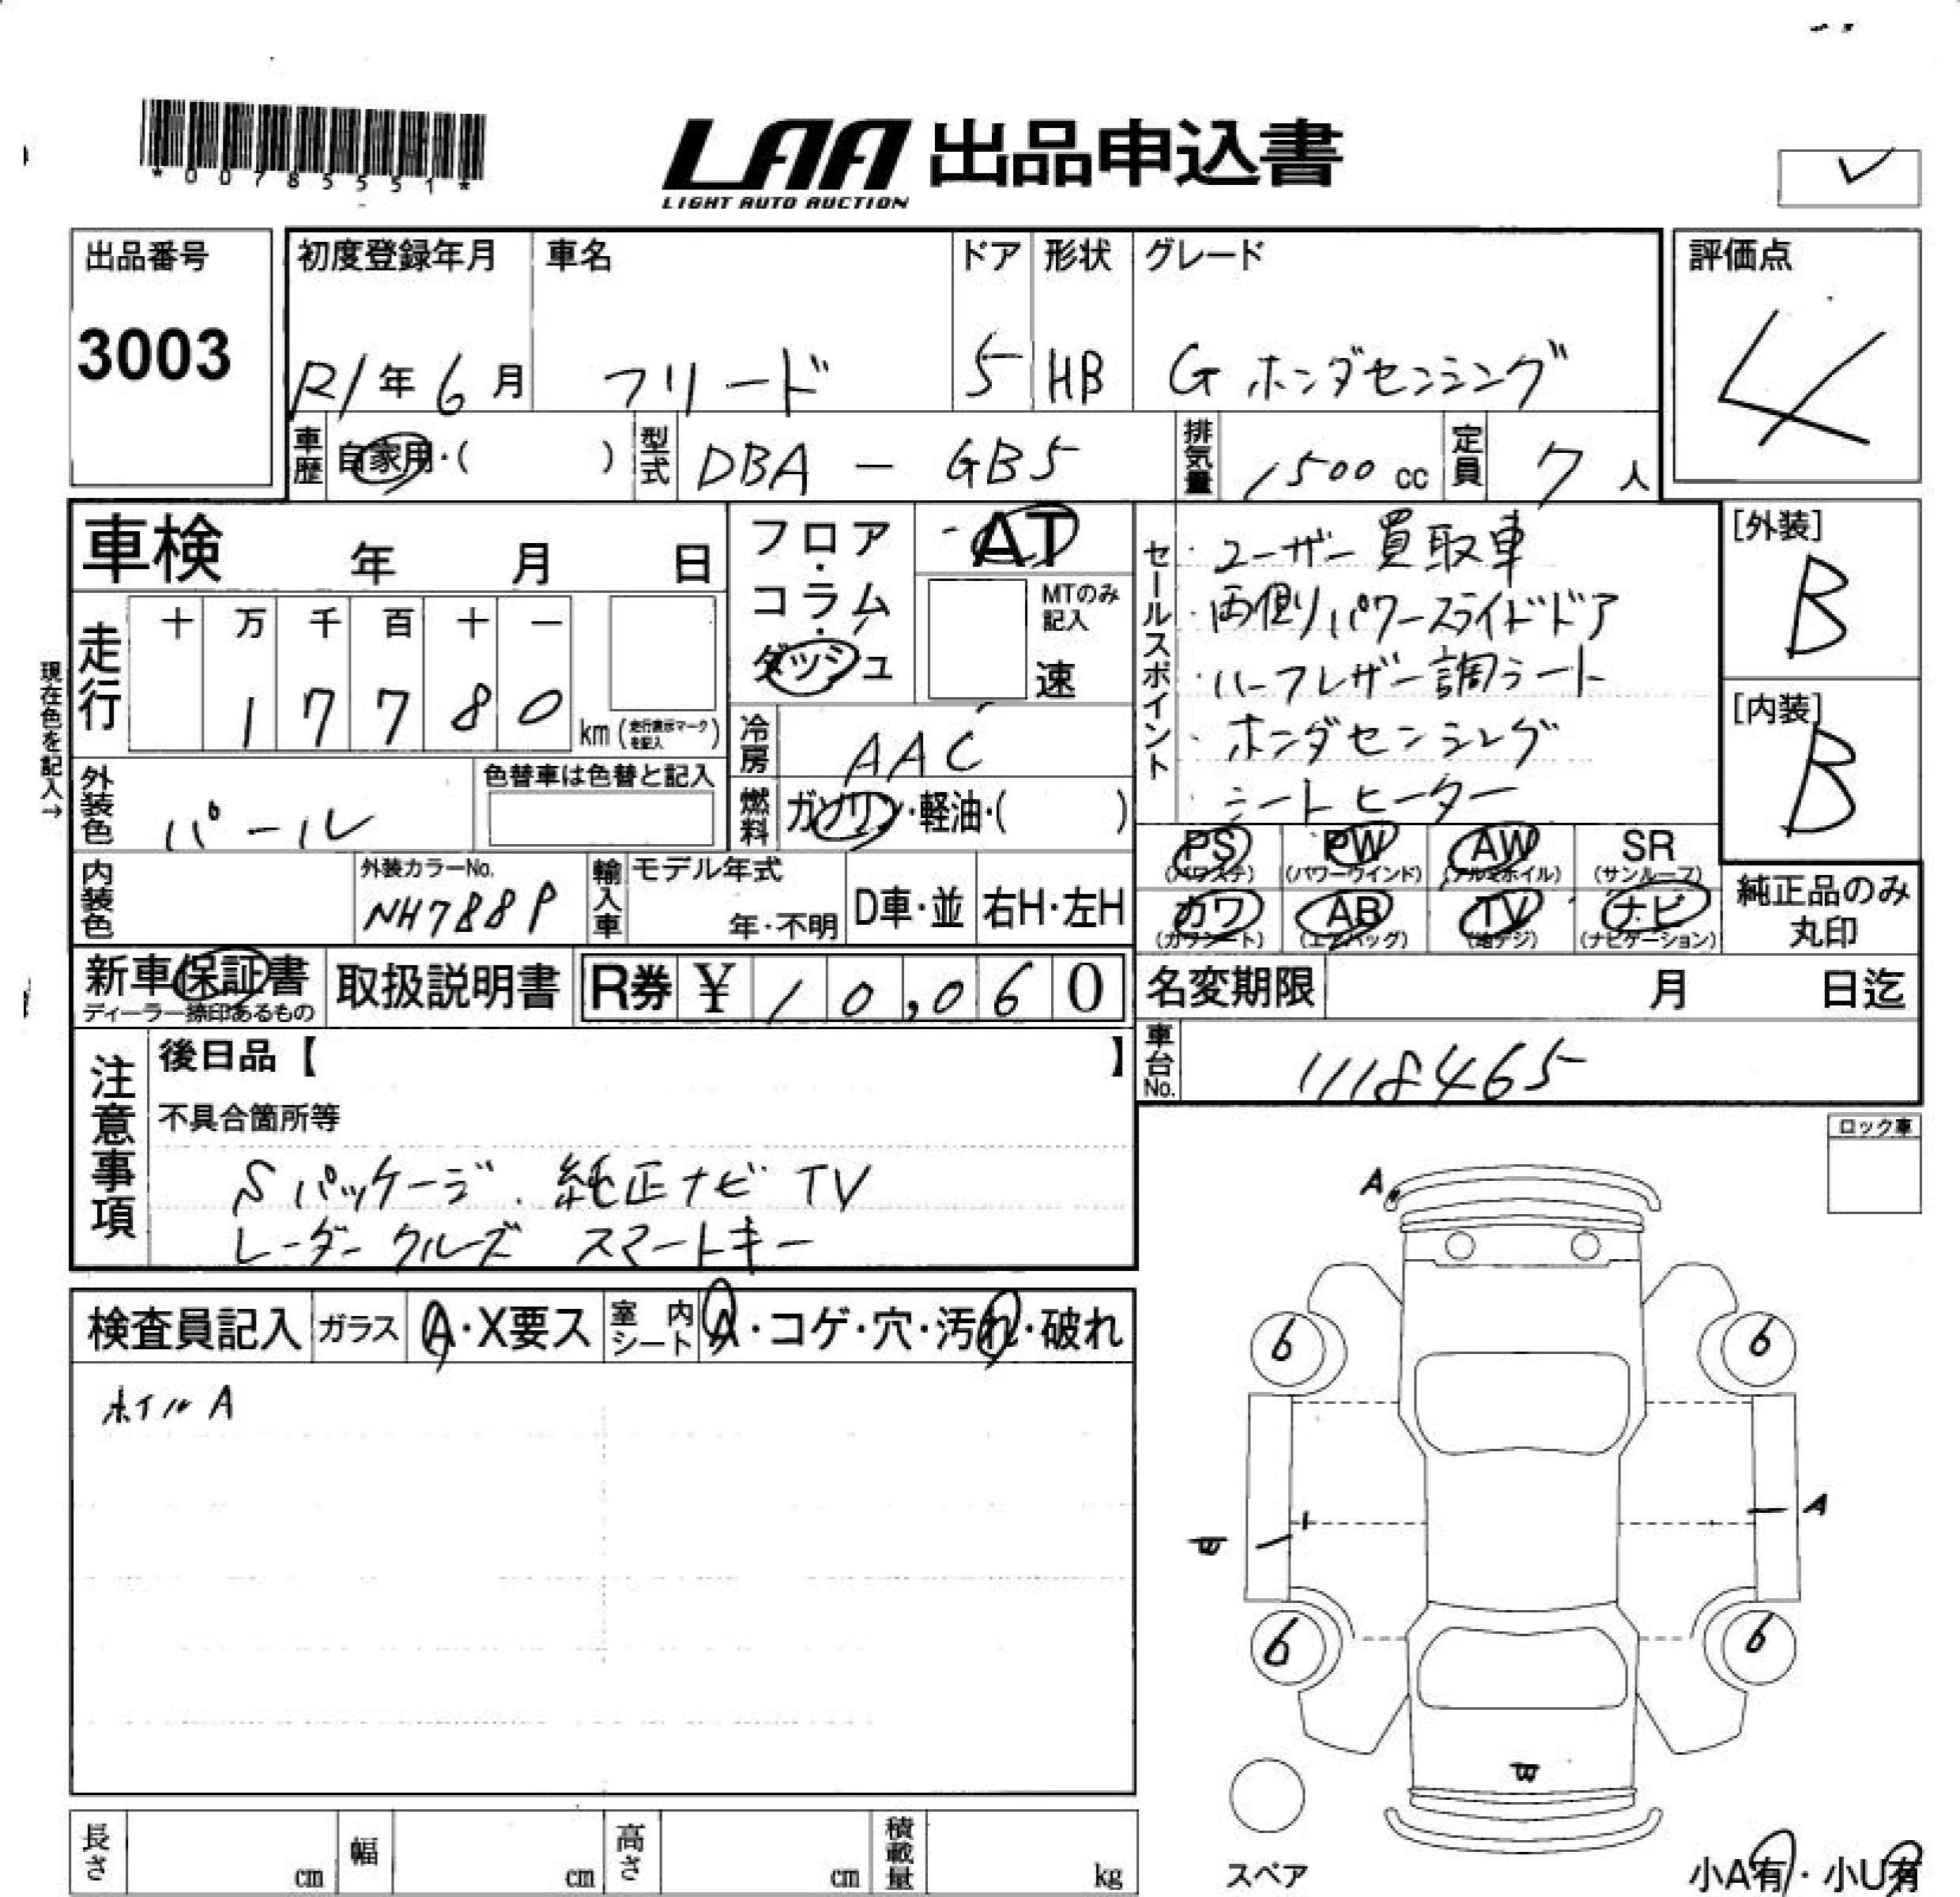 *00785551*
LAA 出品申込書
LIGHT AUTO AUCTION
出品番号
3003
初度登録年月
R1年6月
車名
フリード
ドア
5
形状
HB
グレード
G ホンダセンシング
評価点
4
車歴
自家用・( )
型式
DBA - GB5
排気量
1500 cc
定員
7 人
車検 年 月 日
走行
十 万 千 百 十 一
1 7 7 8 0
km (走行表示マークを記入)
現在色を記入→
外装色
パール
色替車は色替と記入
内装色
外装カラーNo.
NH788P
輸入車
モデル年式
年・不明
D車・並
右H・左H
フロア・
コラム・
ダッシュ
AT
MTのみ
記入
速
冷房
AAC
燃料
ガソリン・軽油・( )
セールスポイント
・ユーザー買取車
・両側パワースライドドア
・ハーフレザー調シート
・ホンダセンシング
シートヒーター
[外装]
B
[内装]
B
PS
(パワステ)
PW
(パワーウインド)
AW
(アルミホイル)
SR
(サンルーフ)
カワ
(カワシート)
AB
(エアバッグ)
TV
(地デジ)
ナビ
(ナビゲーション)
純正品のみ
丸印
新車保証書
ディーラー捺印あるもの
取扱説明書
R券 ¥ 10,060
名変期限 月 日迄
車台No.
1118465
注意事項
後日品【 】
不具合箇所等
Sパッケージ. 純正ナビ TV
レーダークルーズ スマートキー
ロック車
検査員記入
ガラス
A・X要ス
室内シート
A・コゲ・穴・汚れ・破れ
ホイルA
A
6
6
A
6
6
スペア
小A有・小U有
長さ cm
幅 cm
高さ cm
積載量 kg